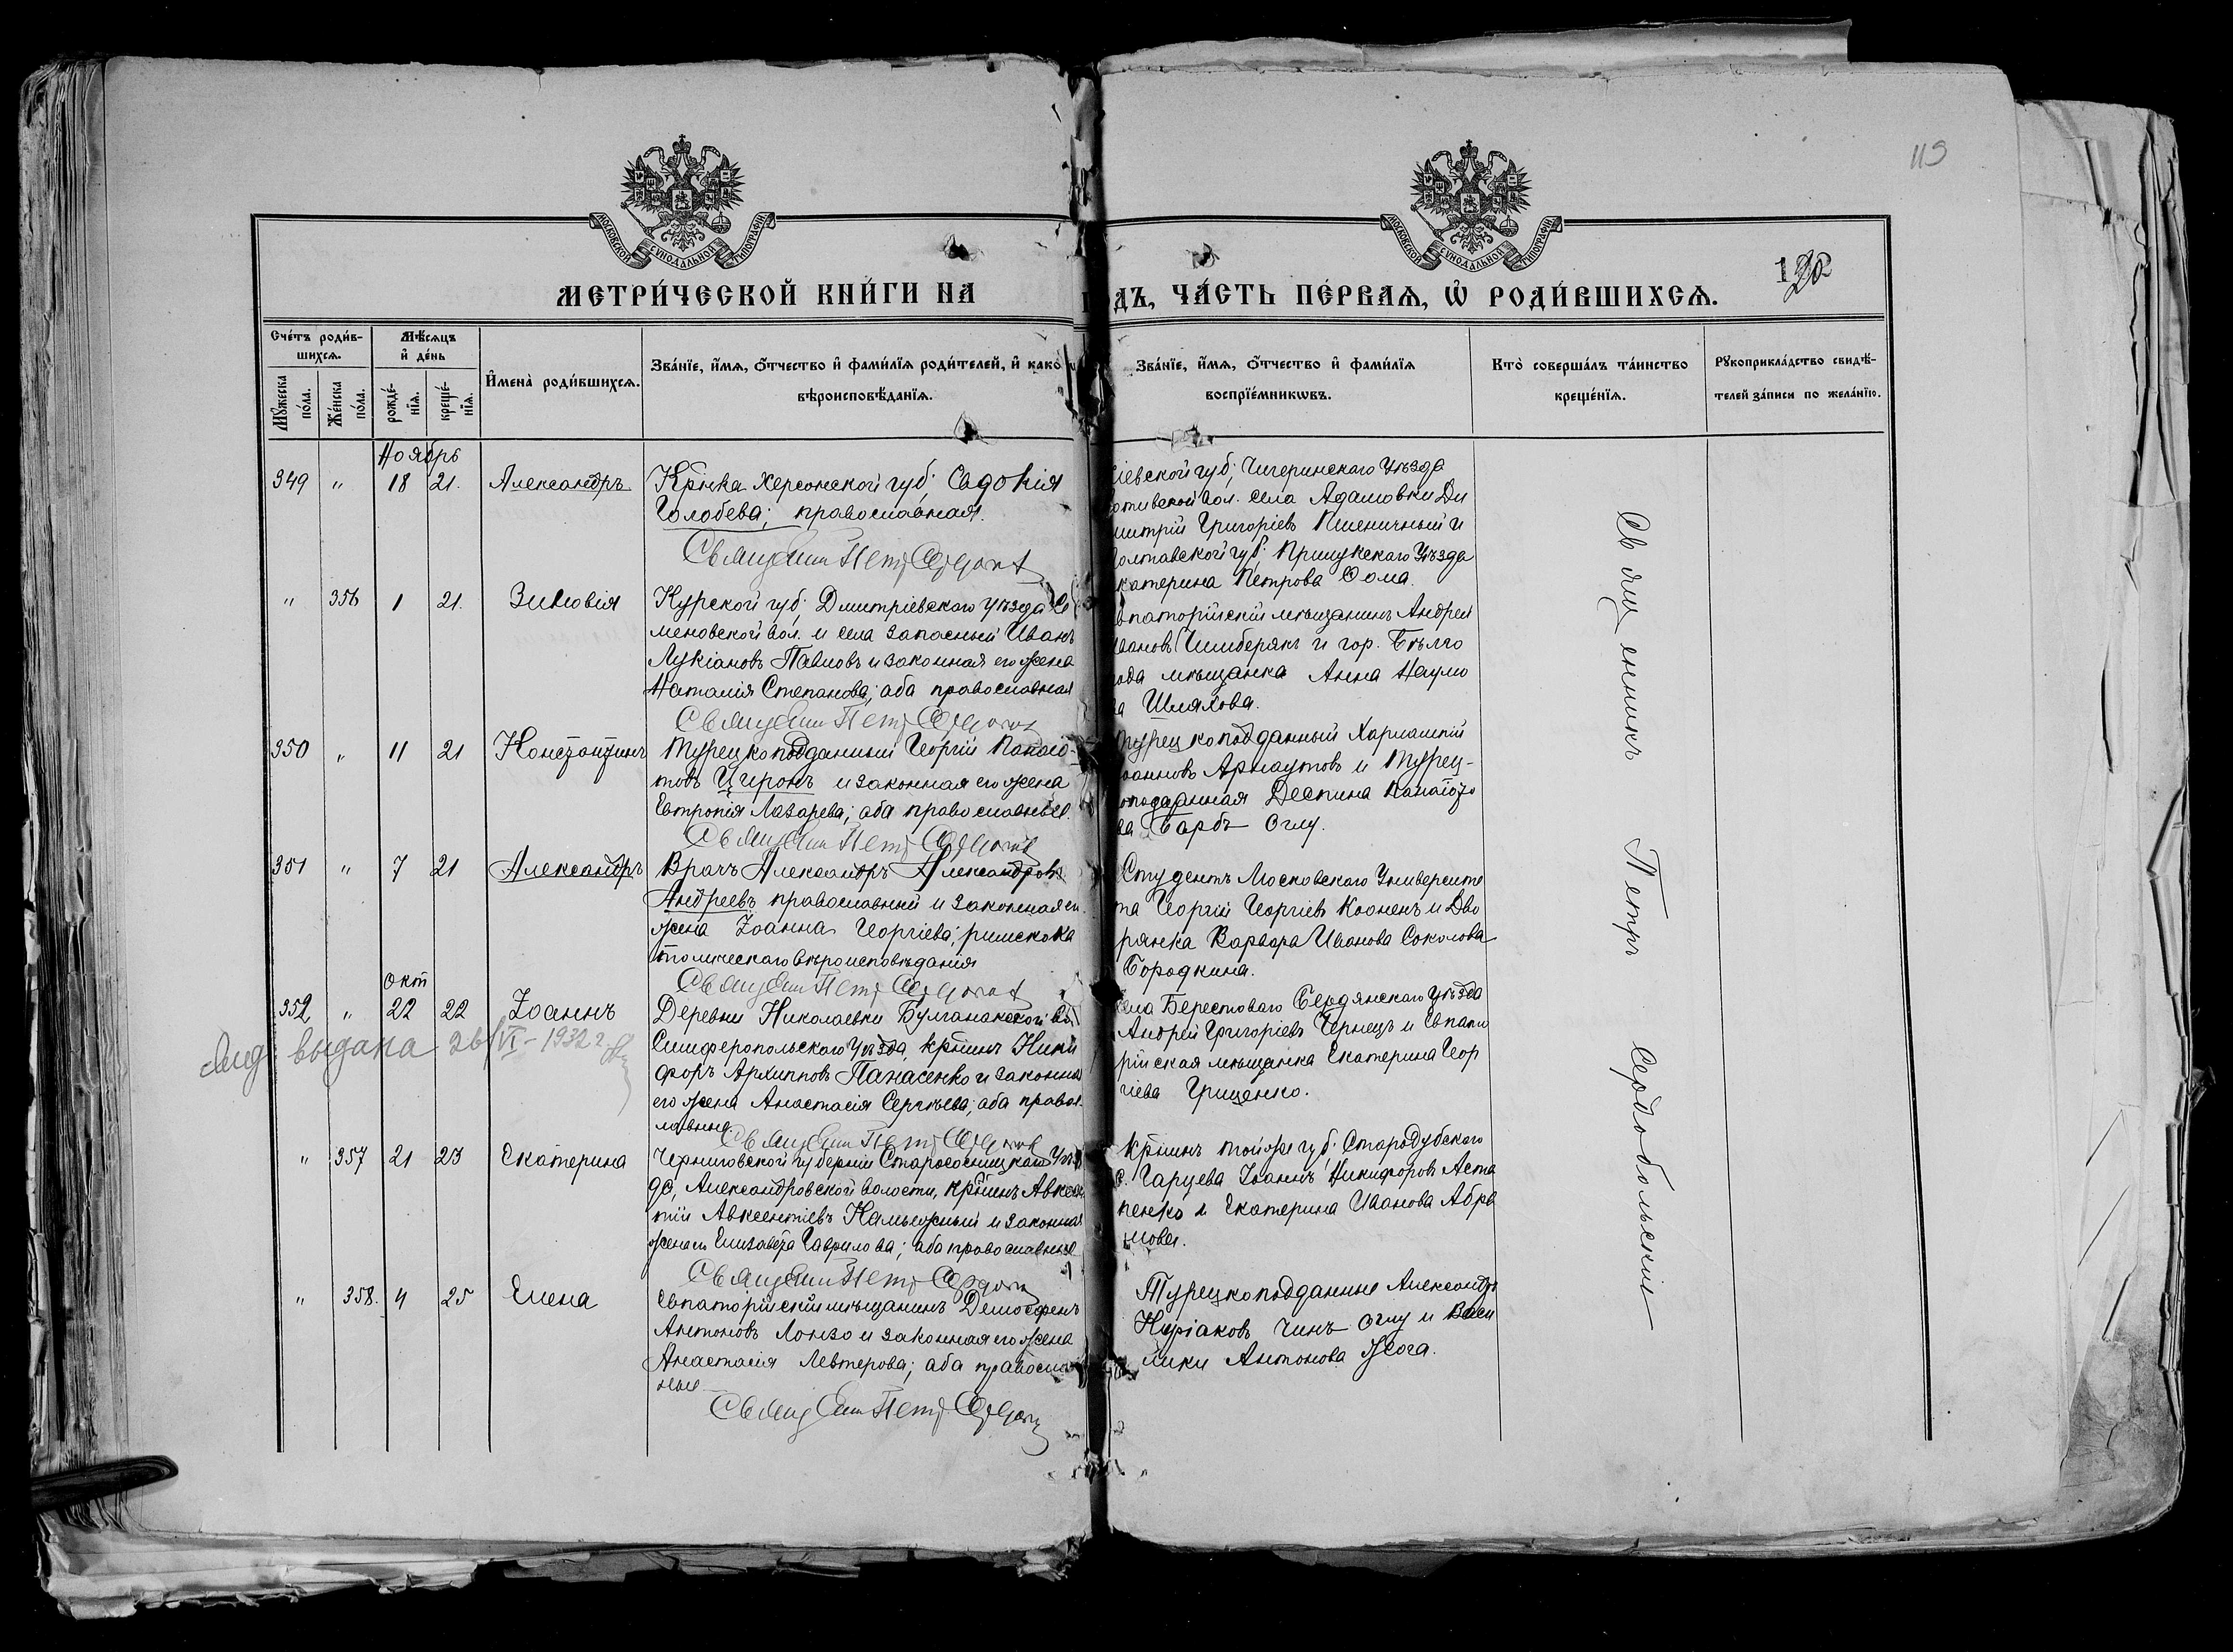 119
МОСКОВСКОЙ СѴНОДАЛЬНОЙ ТИПОГРАФІИ
МОСКОВСКОЙ СѴНОДАЛЬНОЙ ТИПОГРАФІИ
МЕТРИ́ЧЕСКОЙ КНИ́ГИ НА
ДЪ, ЧА́СТЬ ПЕ́РВАЯ, Ѡ РОДИ́ВШИХСЯ.
120
Сче́тъ роди́в-
шихся.
Мꙋжеска по́ла.
Же́нска по́ла.
Мѣ́сяцъ
и҆ де́нь
рожде́-
нїя.
креще́-
нїя.
И҆мена̀ роди́вшихся.
Зва́нїе, и҆́мя, ѻ҆́тчество и҆ фами́лїя роди́телей, и҆ како
вѣроисповѣ́данїя.
Зва́нїе, и҆́мя, ѻ҆́тчество и҆ фами́лїя
воспрїе́мникѡвъ.
Кто̀ соверша́лъ та́инство
креще́нїя.
Рꙋкоприкла́дство свидѣ́-
телей за́писи по жела́нїю.
Ноябрь
349 " 18 21. Александръ
Кр̃нка Херсонской губ; Садокія
Голобева; православная.
Священ Петр Сердоб
іевской губ; Чигеринскаго Уѣзда
отивской вол. села Адамовки Ди
митрій Григоріевъ Пшеничный и
олтавской губ; Прилукскаго Уѣзда
катерина Петрова Сома.
" 356 1 21. Зиновія
Курской губ; Дмитріевскаго уѣзда Се
меновской вол. и села запасный Иванъ
Лукіановъ Павловъ и законная его жена
Наталія Степанова; оба православная
Священ Петр Сердоб
впаторійскій мѣщанинъ Андрей
вановъ Чимберякъ и гор. Бѣлго
ода мѣщанка Анна Наумо
ва Шляхова.
350 " 11 21 Константинъ
Турецкоподданный Георгій Панаіо-
товъ Цгиронъ и законная его жена
Евтропія Лазарева; оба православные.
Священ Петр Сердоб
Турецкоподданный Харлампій
оанновъ Арнаутовъ и Турец-
оподданная Деспина Панаіото
ва Барбъ Оглу.
351 " 7 21 Александръ
Врачъ Александръ Александровъ
Андреевъ православный и законная ег
жена Іоанна Георгіева; римскока
толическаго вѣроисповѣданія
Священ Петр Сердоб
Студентъ Московскаго Университе
та Георгій Георгіевъ Коаненъ и Дво
рянка Варвара Иванова Соколова
Бородкина.
Окт
352 " 22 22 Іоаннъ
выдана 26/VI-1932 г.
Деревни Николаевки Булганакской вол
Симферопольскаго Уѣзда, кр̃нинъ Ники
форъ Архипповъ Панасенко и законная
его жена Анастасія Сергѣева; оба правос
лавные.
Священ Петр Сердоб
села Берестоваго Бердянскаго Уѣзда
Андрей Григоріевъ Чернецъ и Евпато
рійская мѣщанка Екатерина Геор
гіева Гриценко.
" 357 21 23 Екатерина
Черниговской губерніи Старососницкаго Уѣз
да, Александровской волости, кр̃нинъ Авксен
тій Авксентіевъ Калюжный и законная
жена ег Елизавета Гаврилова; оба православные
Священ Петр Сердоб
Кр̃нинъ той же губ; Стародубскаго
с. Гарцева Іоаннъ Никифоровъ Аста
пенко и Екатерина Иванова Абра
мова.
" 358. 4 25 Елена
Евпаторійскій мѣщанинъ Демосфенъ
Антоновъ Лонзо и законная его жена
Анастасія Левтерова; оба православ
ные
Священ Петр Сердоб
Турецкоподданные Александръ
Киріаковъ Чинъ Оглу и Васи
лики Антонова Жога.
Священникъ Петръ Сердобольскій